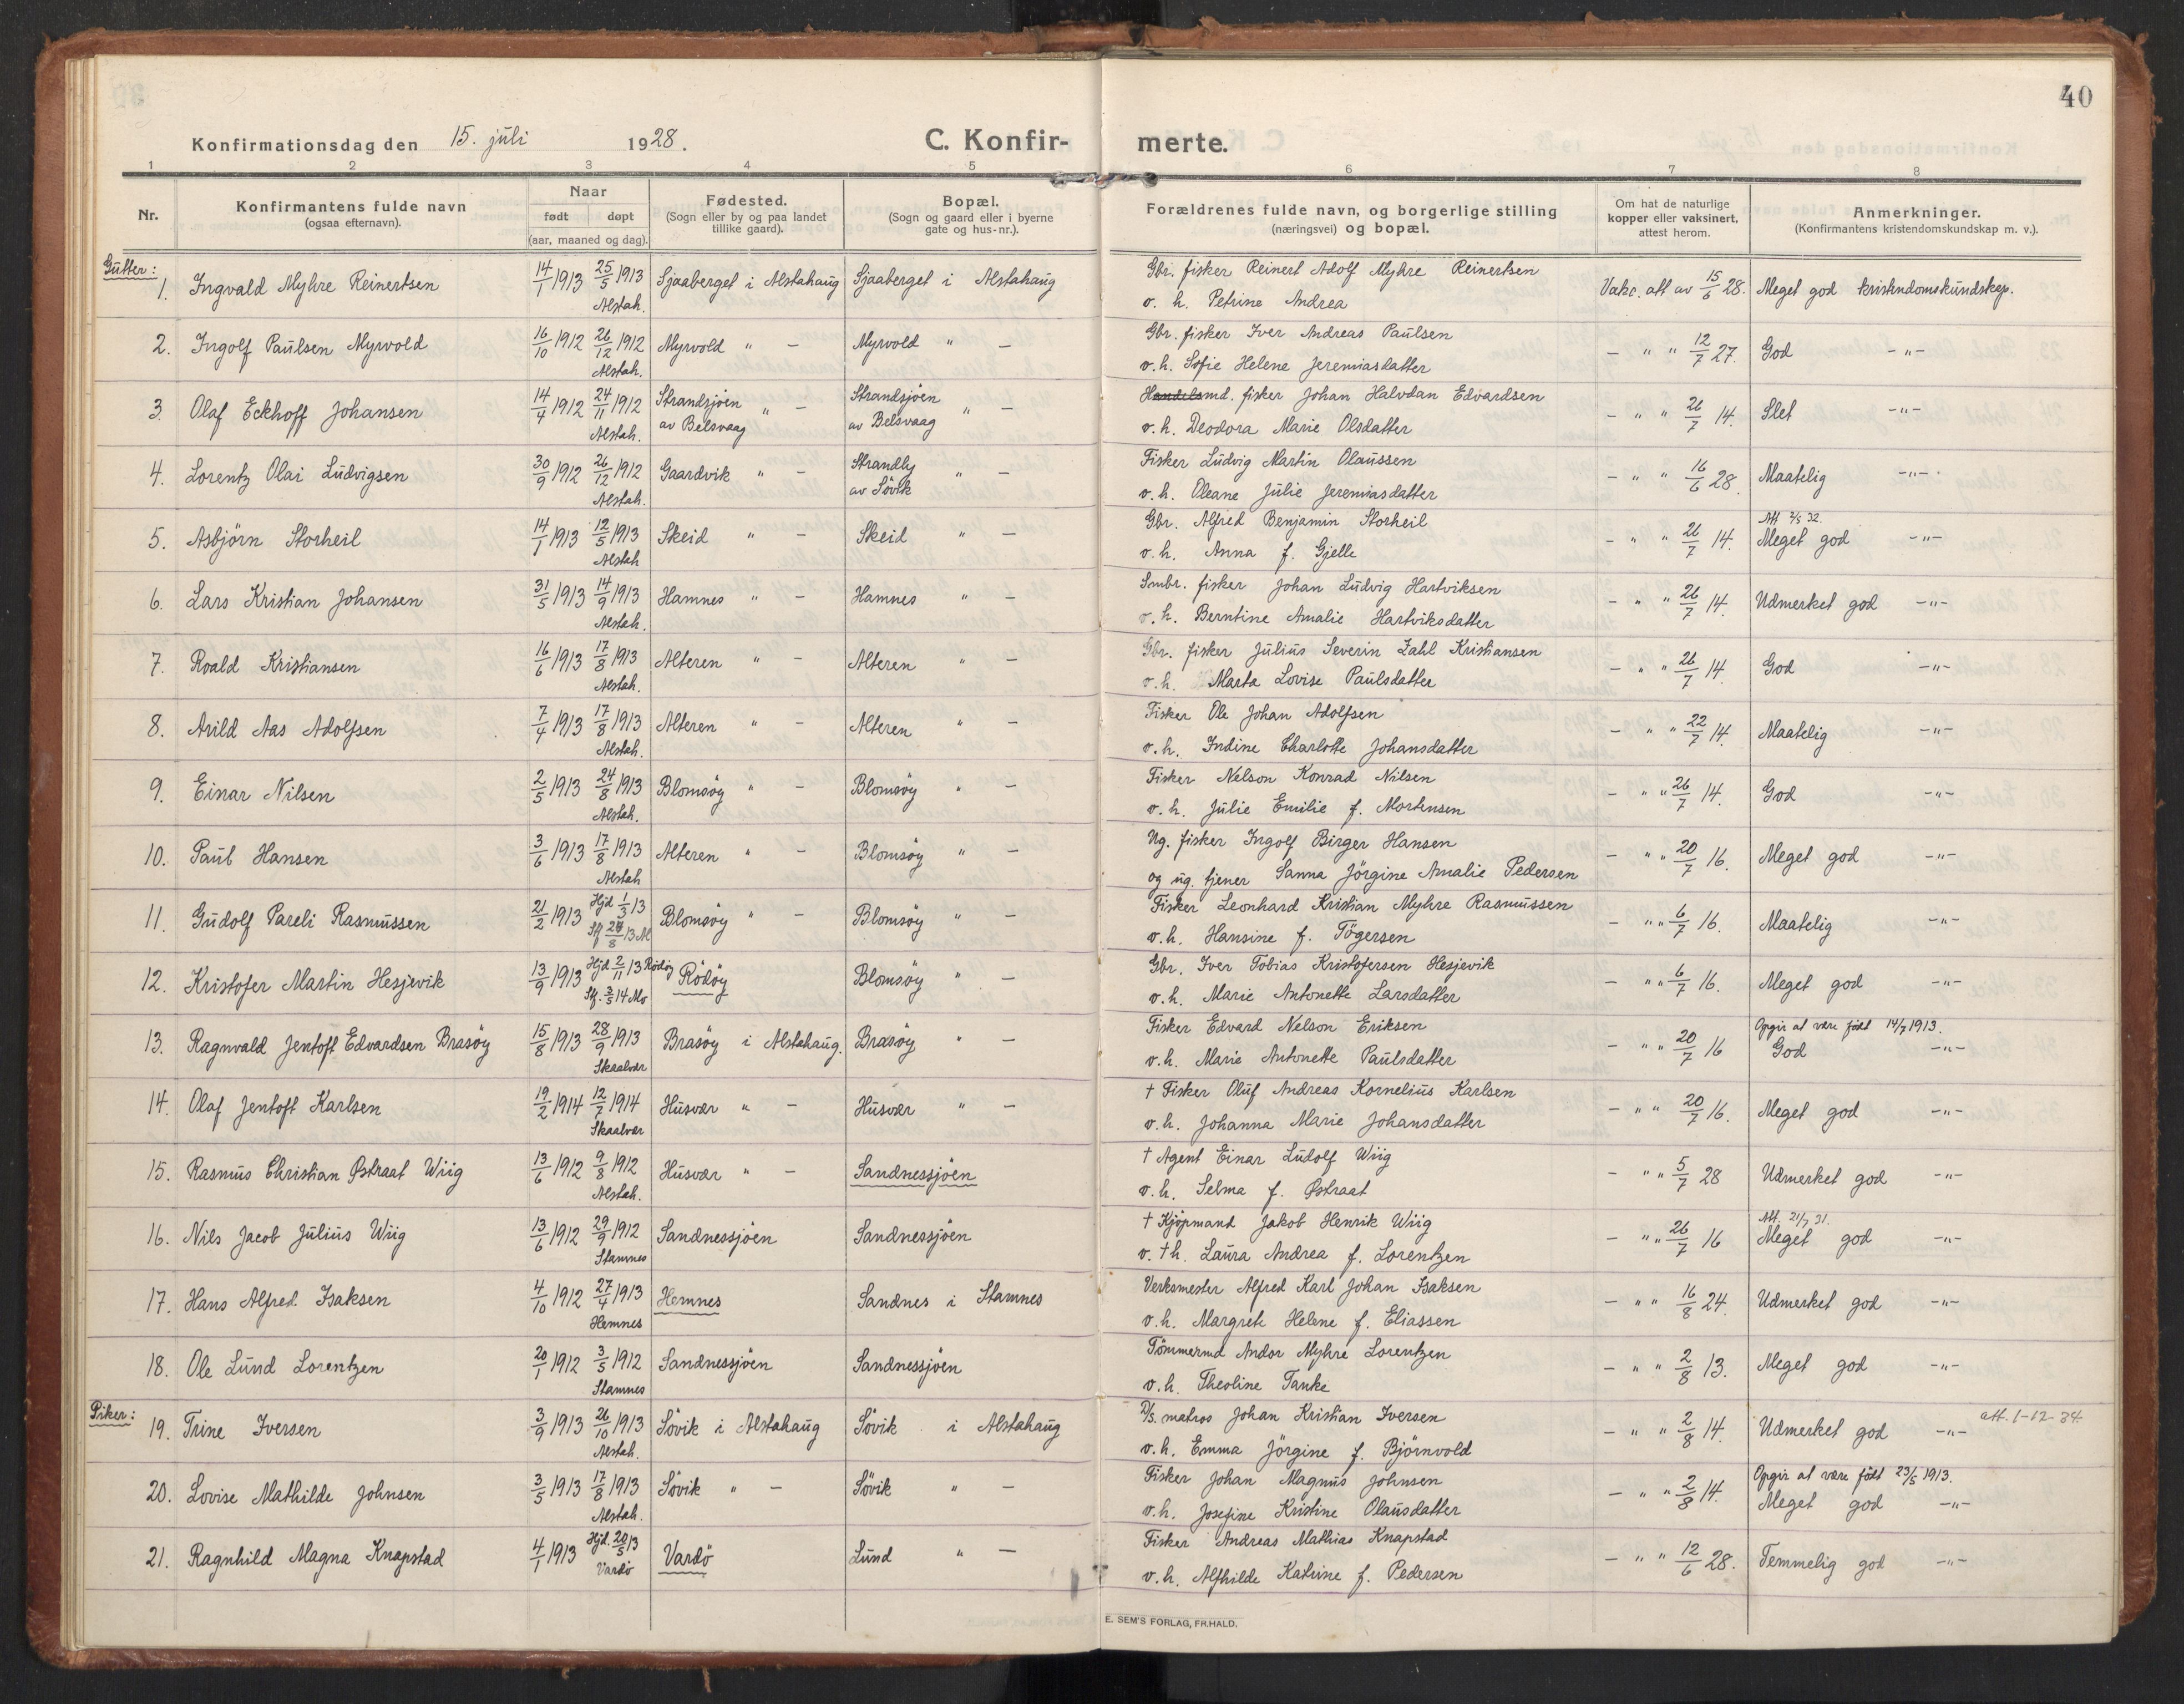 40
Konfirmationsdag den 15. juli 1928. C. Konfir- merte.
1 2 3 4 5 6 7 8
Nr. Konfirmantens fulde navn (ogsaa efternavn). Naar født døpt (aar, maaned og dag). Fødested. (Sogn eller by og paa landet tillike gaard). Bopæl. (Sogn og gaard eller i byerne gate og hus-nr.). Forældrenes fulde navn, og borgerlige stilling (næringsvei) og bopæl. Om hat de naturlige kopper eller vaksinert, attest herom. Anmerkninger. (Konfirmantens kristendomskundskap m. v.).
Gutter:
1. Ingvald Myhre Reinertsen 14/1 1913 25/5 1913 Alstah. Sjaaberget i Alstahaug Sjaaberget i Alstahaug Gbr. fisker Reinert Adolf Myhre Reinertsen
o. h. Petrine Andrea Vakc. att av 15/6 28. Meget god kristendomskundskap.
2. Ingolf Paulsen Myrvold 16/10 1912 26/12 1912 Alstah. Myrvold " - Myrvold " - Gbr. fisker Iver Andreas Paulsen
o. h. Sofie Helene Jeremiasdatter - " " 12/7 27. God -"-
3. Olaf Eckhoff Johansen 14/4 1912 24/11 1912 Alstah. Strandsjöen av Belsvaag " - Strandsjöen av Belsvaag " - Handelsmd. fisker Johan Halvdan Edvardsen
o. h. Deodora Marie Olsdatter - " " 26/7 14. Slet -"-
4. Lorentz Olai Ludvigsen 30/9 1912 26/12 1912 Alstah. Gaardvik " - Strandly av Sövik " - Fisker Ludvig Martin Olaussen
o. h. Oleane Julie Jeremiasdatter - " " 16/6 28. Maatelig -"-
5. Asbjörn Storheil 14/1 1913 12/5 1913 Alstah Skeid " - Skeid " - Gbr. Alfred Benjamin Storheil
o. h. Anna f. Gjelle - " " 26/7 14. Att. 2/5 32. Meget god -"-
6. Lars Kristian Johansen 31/5 1913 14/9 1913 Alstah. Hamnes " - Hamnes " - Smbr. fisker Johan Ludvig Hartviksen
o. h. Berntine Amalie Hartviksdatter - " " 26/7 14. Udmerket god -"-
7. Roald Kristiansen 16/6 1913 17/8 1913 Alstah. Alteren " - Alteren " - Gbr. fisker Julius Severin Zahl Kristiansen
o. h. Marta Lovise Paulsdatter - " " 26/7 14. God -"-
8. Arild Aas Adolfsen 7/4 1913 17/8 1913 Alstah. Alteren " - Alteren " - Fisker Ole Johan Adolfsen
o. h. Indine Charlotte Johansdatter - " " 22/7 14. Maatelig -"-
9. Einar Nilsen 2/5 1913 24/8 1913 Alstah. Blomsöy " - Blomsöy " - Fisker Nelson Konrad Nilsen
o. h. Julie Emilie f. Mortensen - " " 26/7 14. God -"-
10. Paul Hansen 3/6 1913 17/8 1913 Alstah Alteren " - Blomsöy " - Ug. fisker Ingolf Birger Hansen
og ug. tjener Sanna Jörgine Amalie Pedersen - " " 20/7 16. Meget god -"-
11. Gudolf Pareli Rasmussen 21/2 1913 Hjd 1/3 13 Stf 24/8 13 Al Blomsöy " - Blomsöy " - Fisker Leonhard Kristian Myhre Rasmussen
o. h. Hansine f. Tögersen - " " 6/7 16. Maatelig -"-
12. Kristofer Martin Hesjevik 13/9 1913 Hjd 2/11 13 Rödöy Stf. 3/5 14 Mo Rödöy Blomsöy " - Gbr. Iver Tobias Kristofersen Hesjevik
o. h. Marie Antonette Larsdatter - " " 6/7 16. Meget god -"-
13. Ragnvald Jentoft Edvardsen Brasöy 15/8 1913 28/9 1913 Skaalvær Brasöy i Alstahaug. Brasöy " - Fisker Edvard Nelson Eriksen
o. h. Marie Antonette Paulsdatter - " " 20/7 16 Opgir at være født 14/7 1913. God -"-
14. Olaf Jentoft Karlsen 19/2 1914 12/7 1914 Skaalvær Husvær " - Husvær " - † Fisker Oluf Andreas Kornelius Karlsen
o. h. Johanna Marie Johansdatter - " " 20/7 16. Meget god -"-
15. Rasmus Christian Østraat Wiig 13/6 1912 9/8 1912 Alstah. Husvær " - Sandnessjöen † Agent Einar Ludolf Wiig
o. h. Selma f. Østraat - " " 5/7 28 Udmerket god -"-
16. Nils Jacob Julius Wiig 13/6 1912 29/9 1912 Stamnes Sandnessjöen Sandnessjöen † Kjöpmand Jakob Henrik Wiig
o. † h. Laura Andrea f. Lorentzen - " " 26/7 16 Att. 21/7 31. Meget god -"-
17. Hans Alfred Isaksen 4/10 1912 27/4 1913 Hemnes Hemnes Sandnes i Stamnes Verksmester Alfred Karl Johan Isaksen
o. h. Margrete Helene f. Eliassen - " " 16/8 24. Udmerket god -"-
18. Ole Lund Lorentzen 20/1 1912 3/5 1912 Stamnes Sandnessjöen Sandnessjöen Tömmermd Andor Myhre Lorentzen
o. h. Theoline Tanke - " " 2/8 13. Meget god -"-
Piker:
19. Trine Iversen 3/9 1913 26/10 1913 Alstah. Sövik i Alstahaug Sövik i Alstahaug D/S. matros Johan Kristian Iversen
o. h. Emma Jörgine f. Björnvold - " " 2/8 14. Udmerket god -"- att. 1-12-34.
20. Lovise Mathilde Johnsen 3/5 1913 17/8 1913 Alstah. Sövik " - Sövik " - Fisker Johan Magnus Johnsen
o. h. Josefine Kristine Olausdatter - " " 2/8 14. Opgir at være født 23/5 1913. Meget god -"-
21. Ragnhild Magna Knapstad 4/1 1913 Hjd. 20/5 13 Vardö Vardö Lund " - Fisker Andreas Mathias Knapstad
o. h. Alfhilde Katrine f. Pedersen - " " 12/6 28. Temmelig god -"-
E. SEM'S FORLAG, FR.HALD.